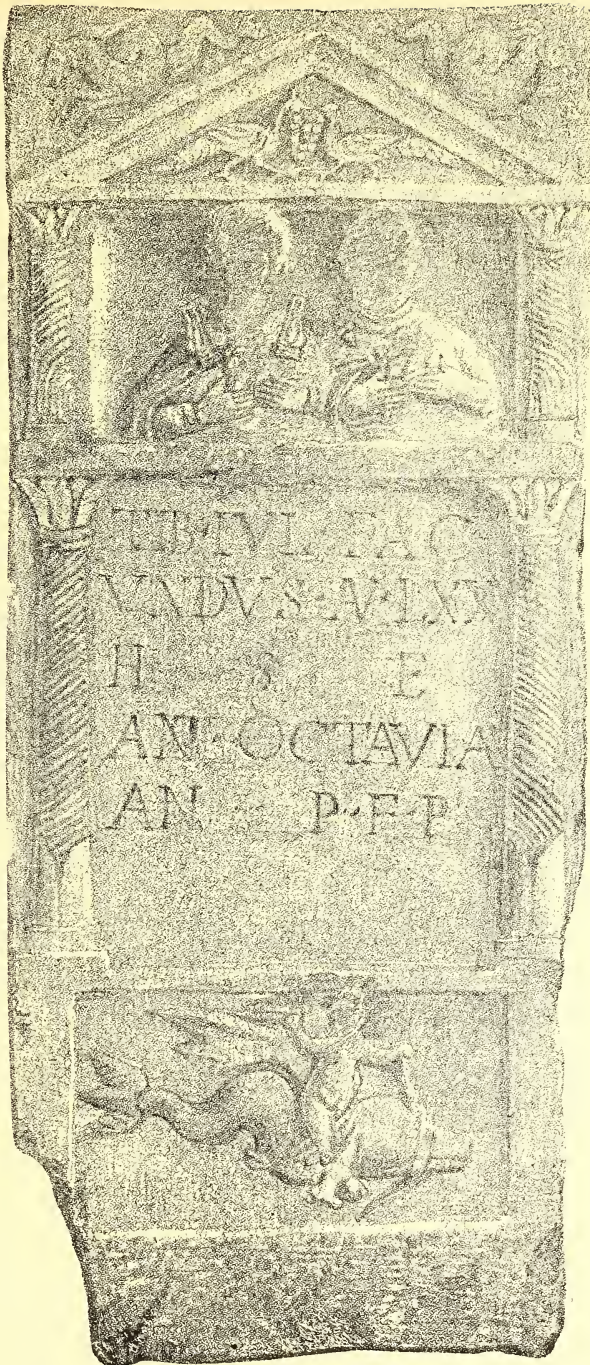 TIB·IVL·FAC
VNDVS·AN·LXX
H S E
OCTAVIA
AN P·F·P